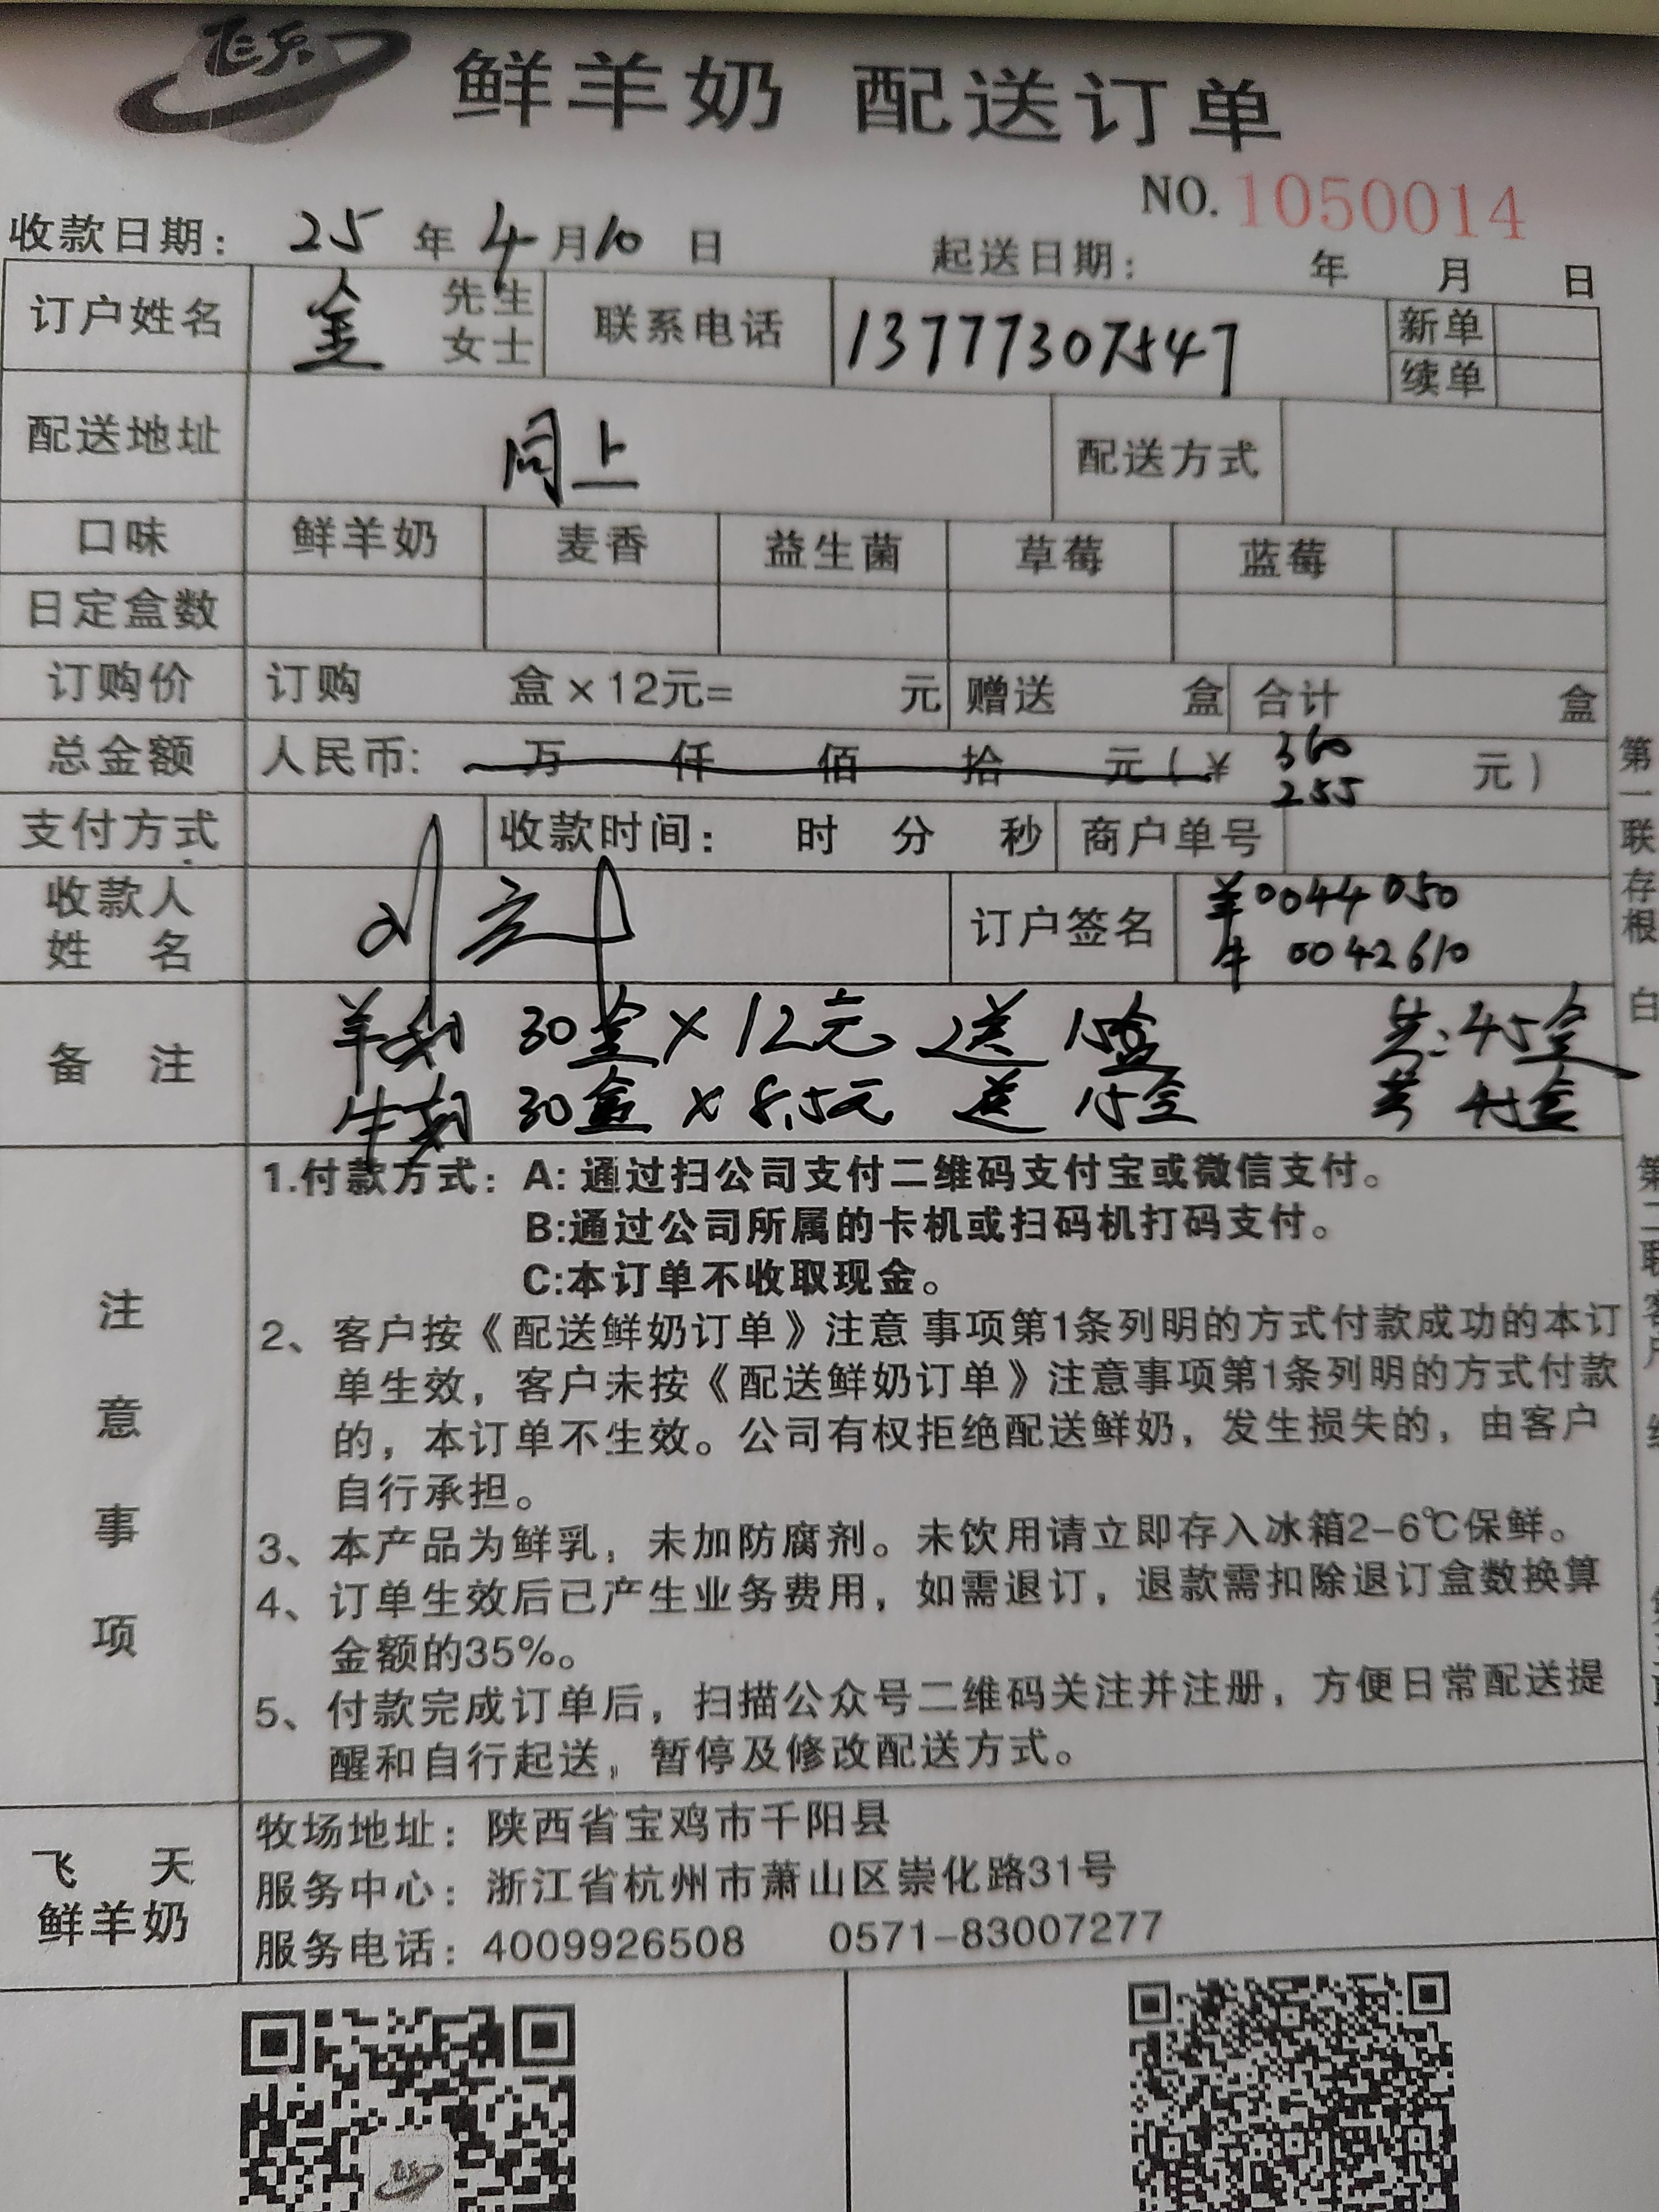 飞乐
鲜羊奶 配送订单
NO. 1050014
收款日期: 25 年 4 月 10 日 起送日期: 年 月 日
订户姓名 金 先生 女士 联系电话 13777307547 新单 续单
配送地址 同上 配送方式
口味 鲜羊奶 麦香 益生菌 草莓 蓝莓
日定盒数
订购价 订购 盒×12元= 元 赠送 盒 合计 盒
总金额 人民币: 万 仟 佰 拾 元(¥ 360 255 元)
支付方式 收款时间: 时 分 秒 商户单号
收款人姓名 订户签名 羊0044050
牛 0042610
备注 羊奶 30盒×12元 送 15盒 共:45盒
牛奶 30盒×8.5元 送 15盒 共 45盒
注意事项
1.付款方式: A: 通过扫公司支付二维码支付宝或微信支付。
B:通过公司所属的卡机或扫码机打码支付。
C:本订单不收取现金。
2、客户按《配送鲜奶订单》注意 事项第1条列明的方式付款成功的本订
单生效，客户未按《配送鲜奶订单》注意事项第1条列明的方式付款
的，本订单不生效。公司有权拒绝配送鲜奶，发生损失的，由客户
自行承担。
3、本产品为鲜乳，未加防腐剂。未饮用请立即存入冰箱2-6℃保鲜。
4、订单生效后已产生业务费用，如需退订，退款需扣除退订盒数换算
金额的35%。
5、付款完成订单后，扫描公众号二维码关注并注册，方便日常配送提
醒和自行起送，暂停及修改配送方式。
飞天
鲜羊奶
牧场地址: 陕西省宝鸡市千阳县
服务中心: 浙江省杭州市萧山区崇化路31号
服务电话: 4009926508 0571-83007277
第一联存根 白
第二联客户